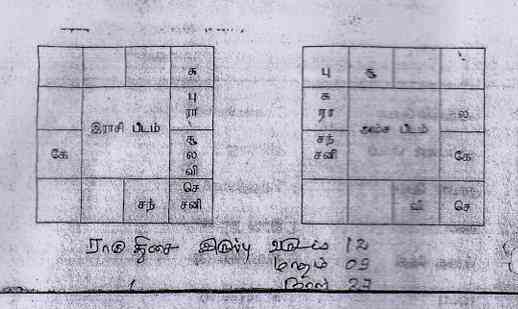 சு
பு சூ
பு
ரா
சு
ரா
ல
இராசி பீடம்
அம்ச பீடம்
கே
சூ
ல
வி
சந்
சனி
கே
சந்
செ
சனி
வி
செ
ராகு திசை இருப்பு வருடம் 12
மாதம் 09
நாள் 27